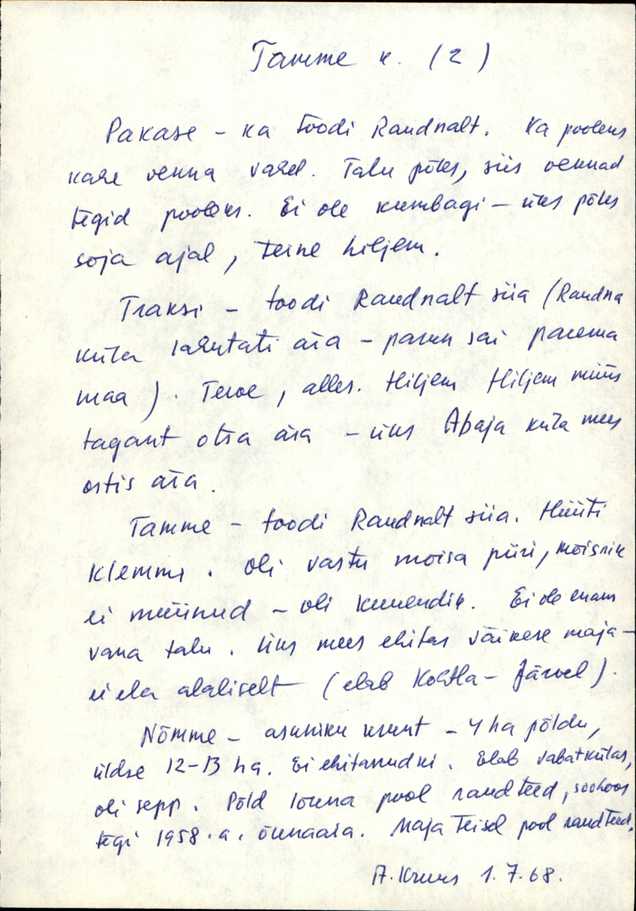 Tamme k. (2)
Pakase - ka toodi Raudnalt. Ka pooleks
kahe venna vahel. Talu põles, siis vennad
tegid pooleks. Ei ole kumbagi - üks põles
sõja ajal, teine hiljem.
Traksi - toodi Raudnalt siia (Raudna
küla lahutati ära - parun sai parema
maa). Terve, alles. Hiljem Hiljem müüs
tagant otsa ära - üks Abaja küla mees
ostis ära.
Tamme - toodi Raudnalt siia. Hüüti
Klemmi. Oli vastu mõisa piiri, mõisnik
ei müünud - oli kuuendik. Ei ole enam
vana talu. Üks mees ehitas väikese maja -
ei ela alaliselt (elab Kohtla-Järvel).
Nõmme - asuniku krunt - 4 ha põldu,
üldse 12-13 ha. Ei ehitanudki. Elab vabatkülas,
oli sepp. Põld lõuna pool raudteed, sovhoos
tegi 1958. a. õunaaia. Maja teisel pool raudteed.
A. Kruus 1.7.68.